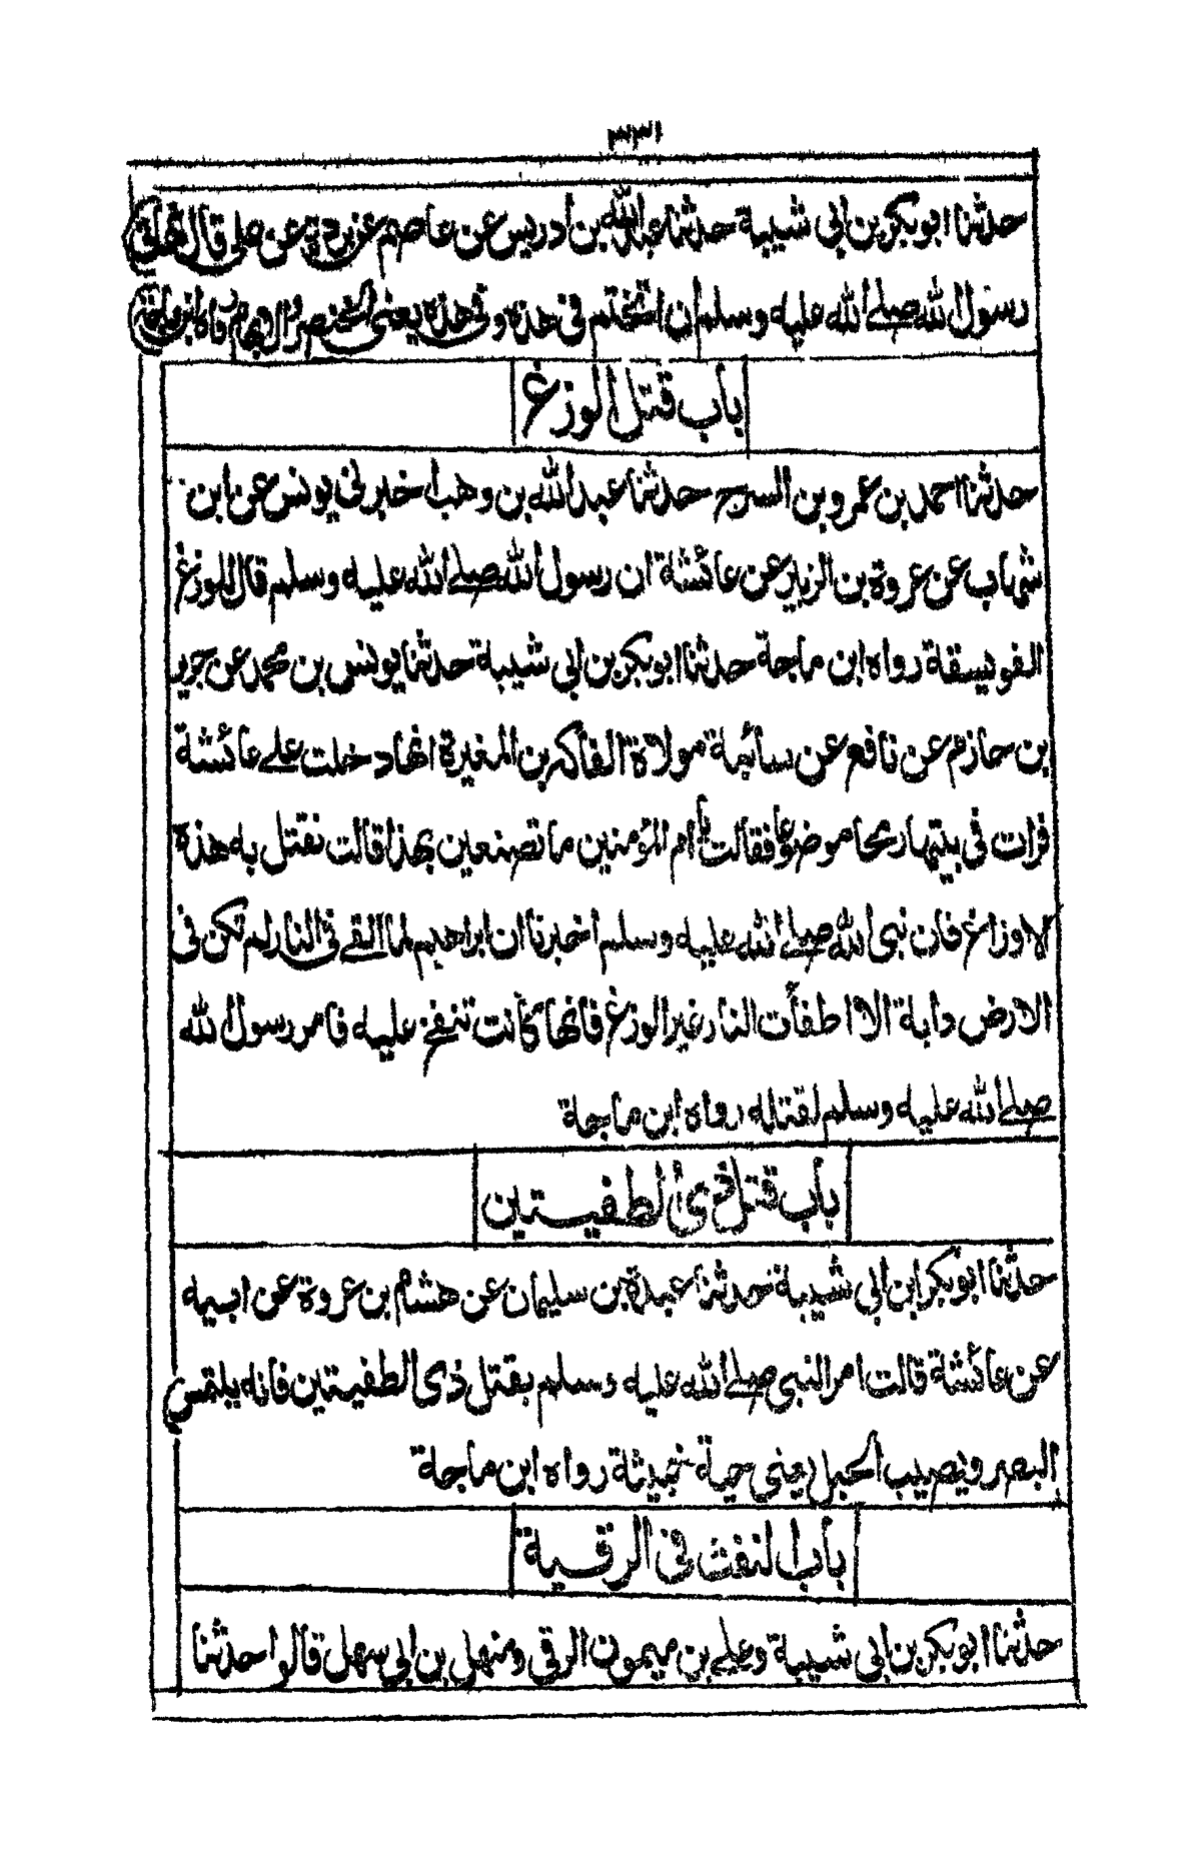 ٣٣١
حدثنا ابوبكر بن ابی شيبة حدثنا عبدالله بن ادريس عن عاصم عن بن بردة عن علی قال نهانی
رسول الله صلے الله عليه وسلم ان اتختم فی هذه وفی هذه يعنی الخنصر والابهام رواه ابن ماجة
باب قتل الوزغ
حدثنا احمد بن عمرو بن السرج حدثنا عبد الله بن وهب اخبرنی يونس عن ابن
شهاب عن عروة بن الزبير عن عائشة ان رسول الله صلے الله عليه وسلم قال للوزغ
الفويسقة رواه ابن ماجة حدثنا ابوبكر بن ابی شيبة حدثنا يونس بن محمد عن جرير
بن حازم عن نافع عن سائبة مولاة الفاكه بن المغيرة انها دخلت علے عائشة
فرات فی بيتها رمحا موضوعا فقالت يا ام المؤمنين ما تصنعين بهذا قالت نقتل به هذه
الاوزاغ فان نبی الله صلے الله عليه وسلم اخبرنا ان ابراهيم لما القے فی النار لم تكن فی
الارض دابة الا اطفأت النار غير الوزغ فانها كانت تنفخ عليه فامر رسول الله
صلے الله عليه وسلم لقتله رواه ابن ماجة
باب قتل ذی الطفيتين
حدثنا ابوبكر ابن ابی شيبة حدثنا عبدة بن سليمان عن هشام بن عروة عن ابيه
عن عائشة قالت امر النبی صلے الله عليه وسلم بقتل ذی الطفيتين فانه يلتمس
البصر ويصيب الحبل يعنی حية خبيثة رواه ابن ماجة
باب النفث فی الرقية
حدثنا ابوبكر بن ابی شيبة وعلے بن ميمون الرقی وسهل بن ابی سهل قالوا حدثنا